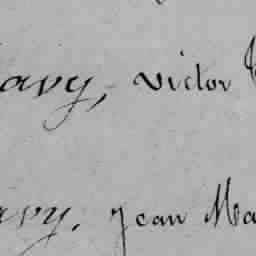 avy, Victor
avy, Jean Ma